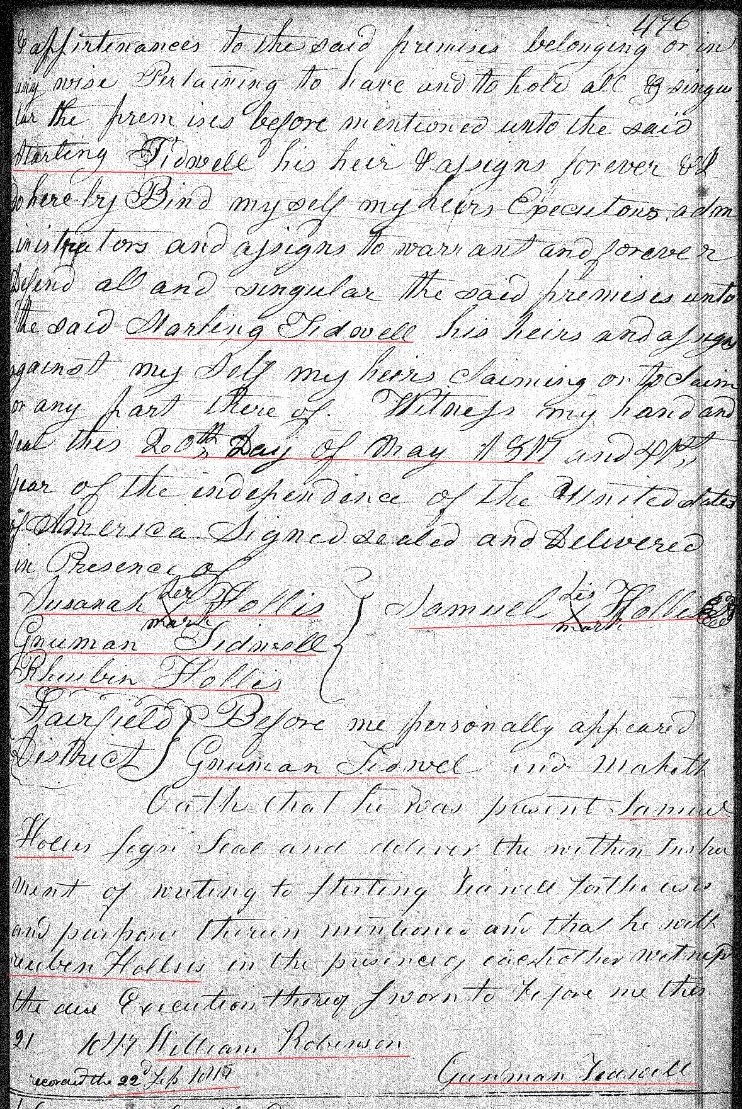 476
& appirtenances to the said premises belonging or in
any wise Pertaining to have and to hold all & singu
lar the premises before mentioned unto the said
Starling Tidwell his heir & assigns forever & I
do hereby Bind my self my heirs Executors adm
inistrators and assigns to warrant and forever
Defend all and singular the said premises unto
the said Starling Tidwell his heirs and assigns
against my Self my heirs claiming or to claim
or any part there of. Witness my hand and
seal this 20th Day of May 1817 and 41st
year of the independance of the United States
of America Signed sealed and Delivered
in Presence of
Susanah her Hollis Samuel his Hollis
mark mark
Gnuman Tidwell
Rheubin Hollis
Fairfield Before me personally appeared
District Gnuman Tidwel and Maketh
Oath that he was present Samuel
Hollis sign Seal and deliver the within Instru
ment of writing to Sterling Tidwell for the uses
and purpose therein mentioned and that he with
Reuben Hollis in the presence of each other witness
the due Execution thereof Sworn to before me this
21 1817 William Robinson
recorded the 22d Feb Gunman Tidwell